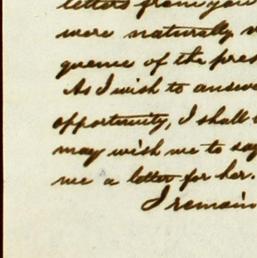 letters from you
were naturally
quence of the pres
As I wish to answe
opportunity, I shall
may wish me to say
me a letter for her.
I remain